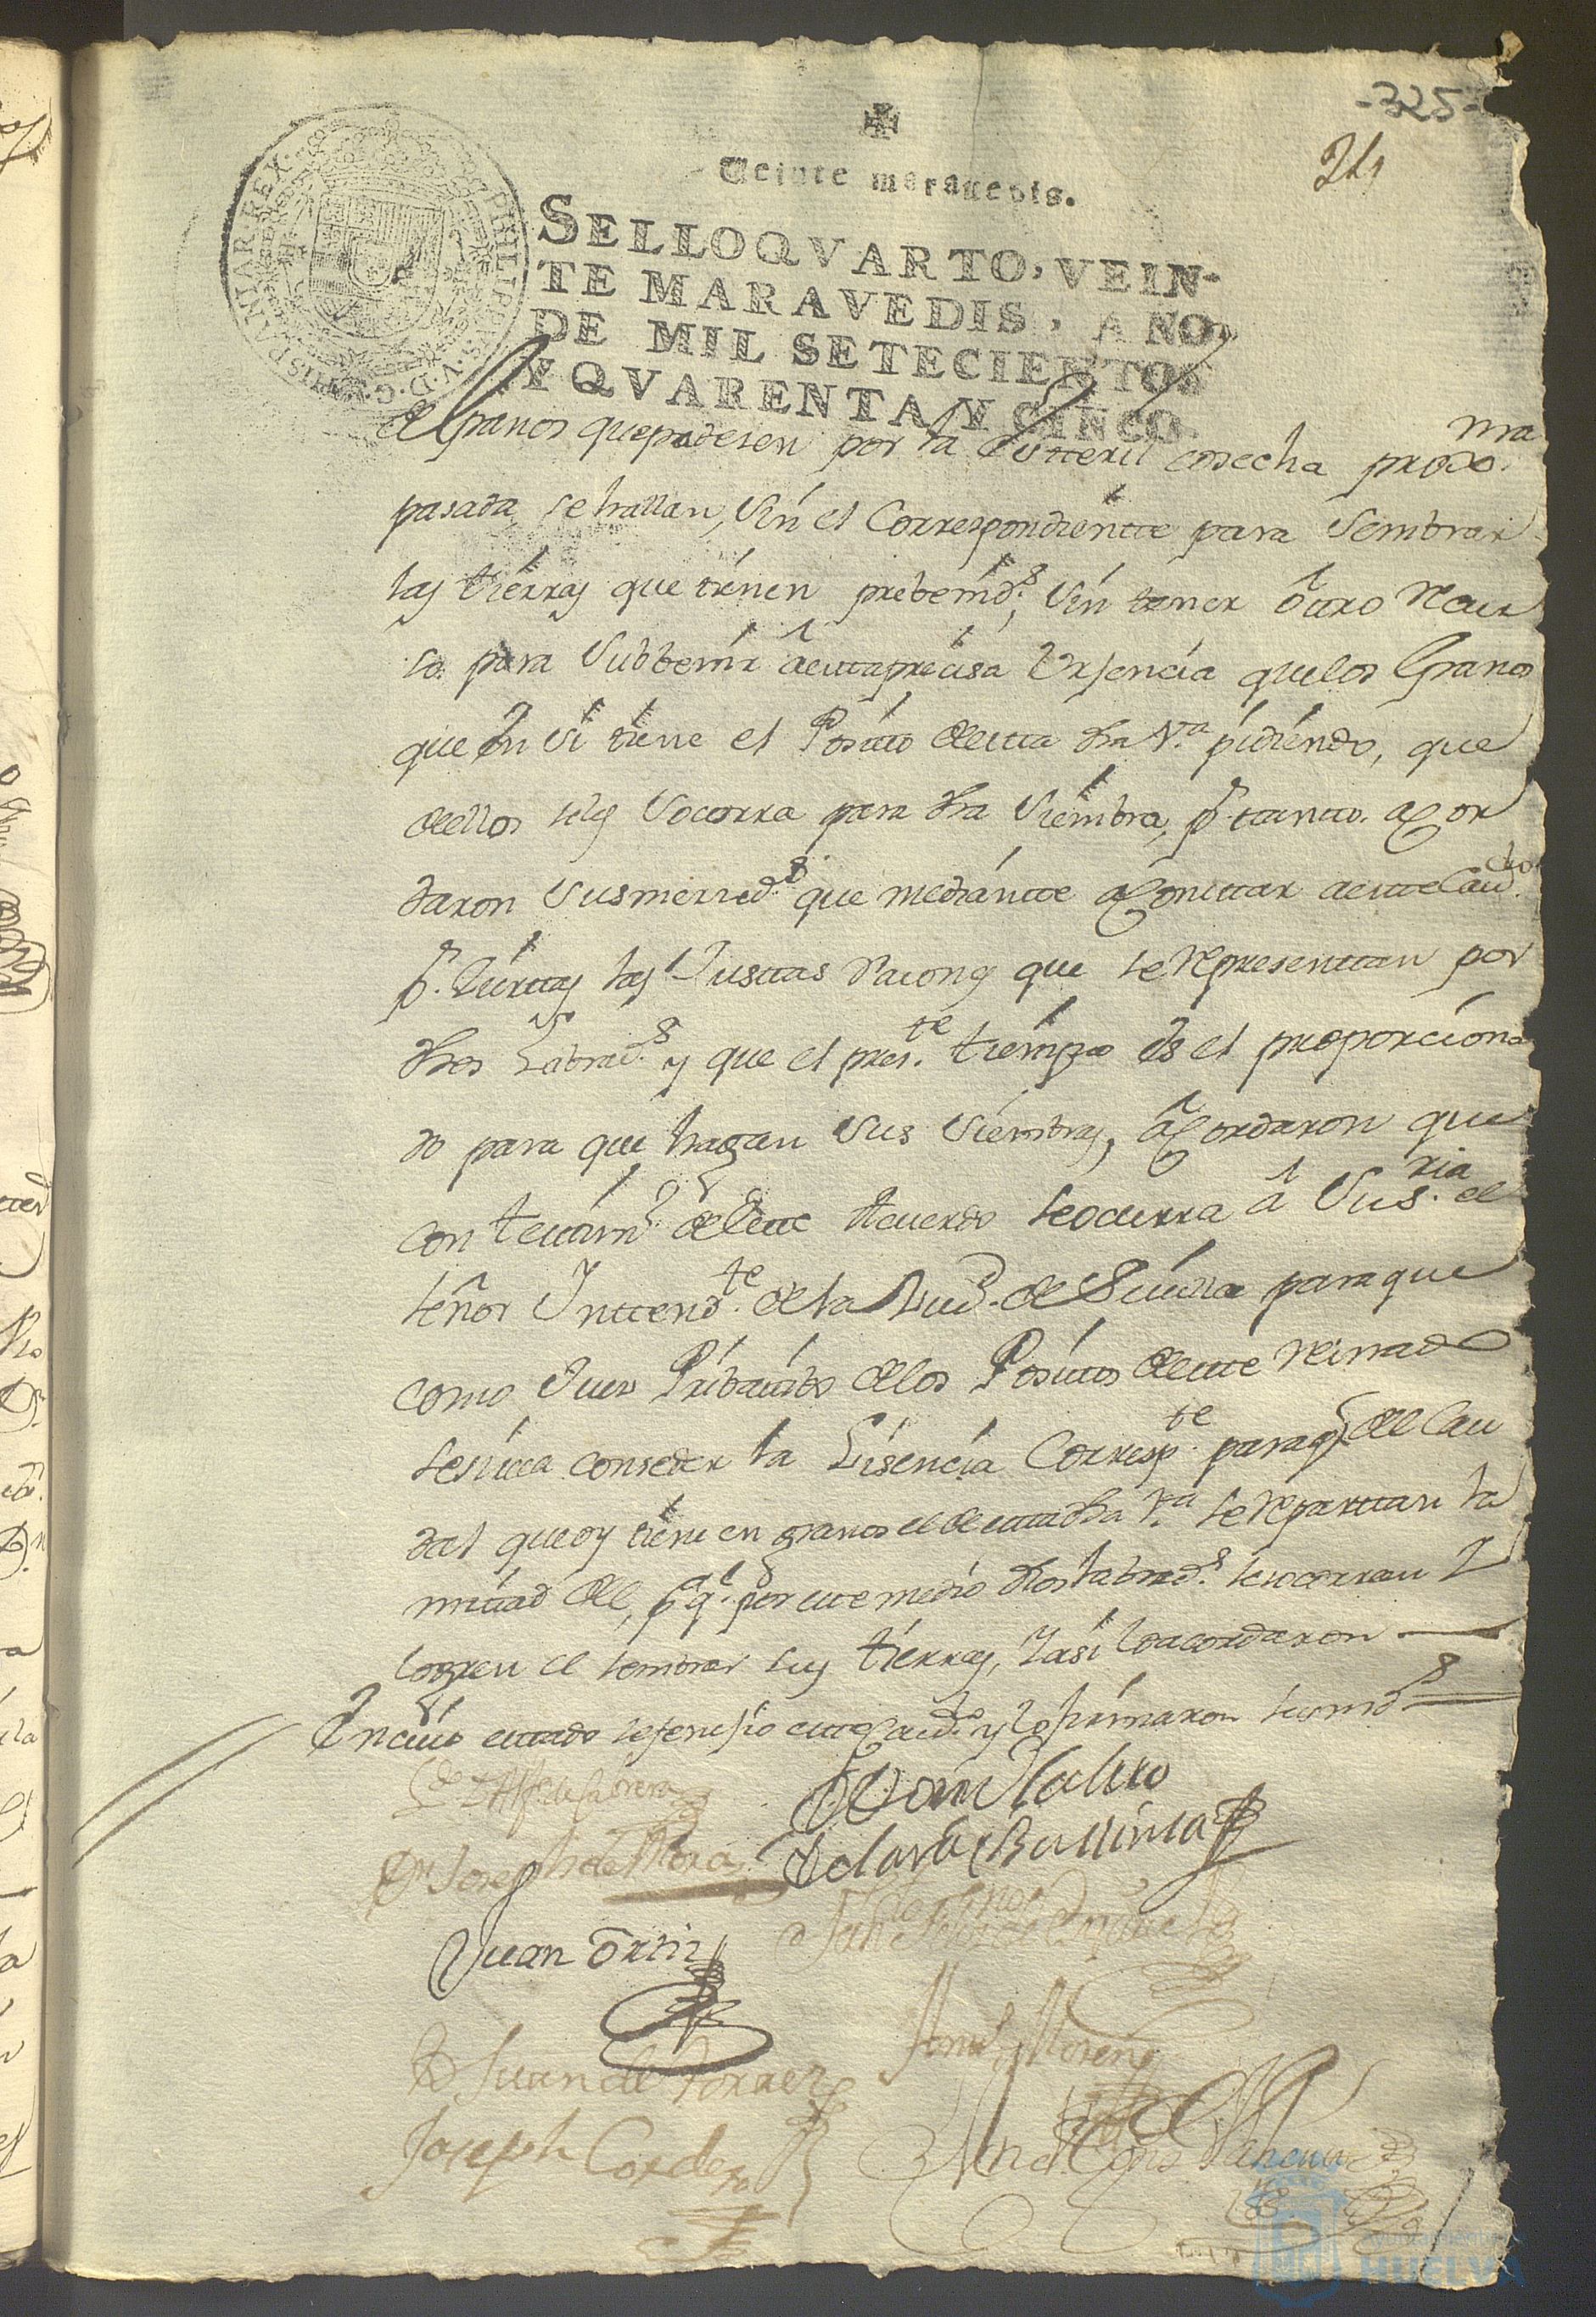 -325-
24
Veinte maravedis.
SELLO QVARTO, VEIN-
TE MARAVEDIS, AÑO
DE MIL SETECIENTOS
Y QVARENTA Y CINCO.
PHILIPPUS V D G HISPANIAR REX
de Granos que padesen por la Estteril cosecha proxo. ma
pasada, se hallan, Sin el Correspondientte para Sembrar
las tierras que tienen prebenids, Sin tener ôtro Recur
so para Subbenir â esta presisa Urjencia que los Granos
que En Si tiene el Posito de esta dha Va. pidiendo, que
de ellos seles Socorra para dha Siembra, pr. tantto. acor
daron Sus merceds que mediantte a Constar a este Cavdo.
pr. Ziertas las Justtas Raiones que se Representtan por
dhos Labrads. y que el preste. tiempo es el proporciona
do para que hagan Sus Siembras, âcordaron que
con testimo. de Este Acuerdo se ocurra â Us. ria el
señor Inttendte. de la Ciud. de Sevilla para que
como Juez Pribatibo de los Positos de este Reinado
se sirva conseder la Lisencia Correspte. para q del Cau
dal que oy tiene en granos el de esta dha Va. se Reparttan la
mitad del, pa. qe. por este medio dhos labrads. se socorran I
logren el sembrar sus tierras, Y asi lo acordaron
En cuio estado se fenesio este Cavdo. y lo firmaron sus mds
Dn Joseph de Mora
Juan Ortiz
D Juan de Torres
Moreno
Joseph Cordero